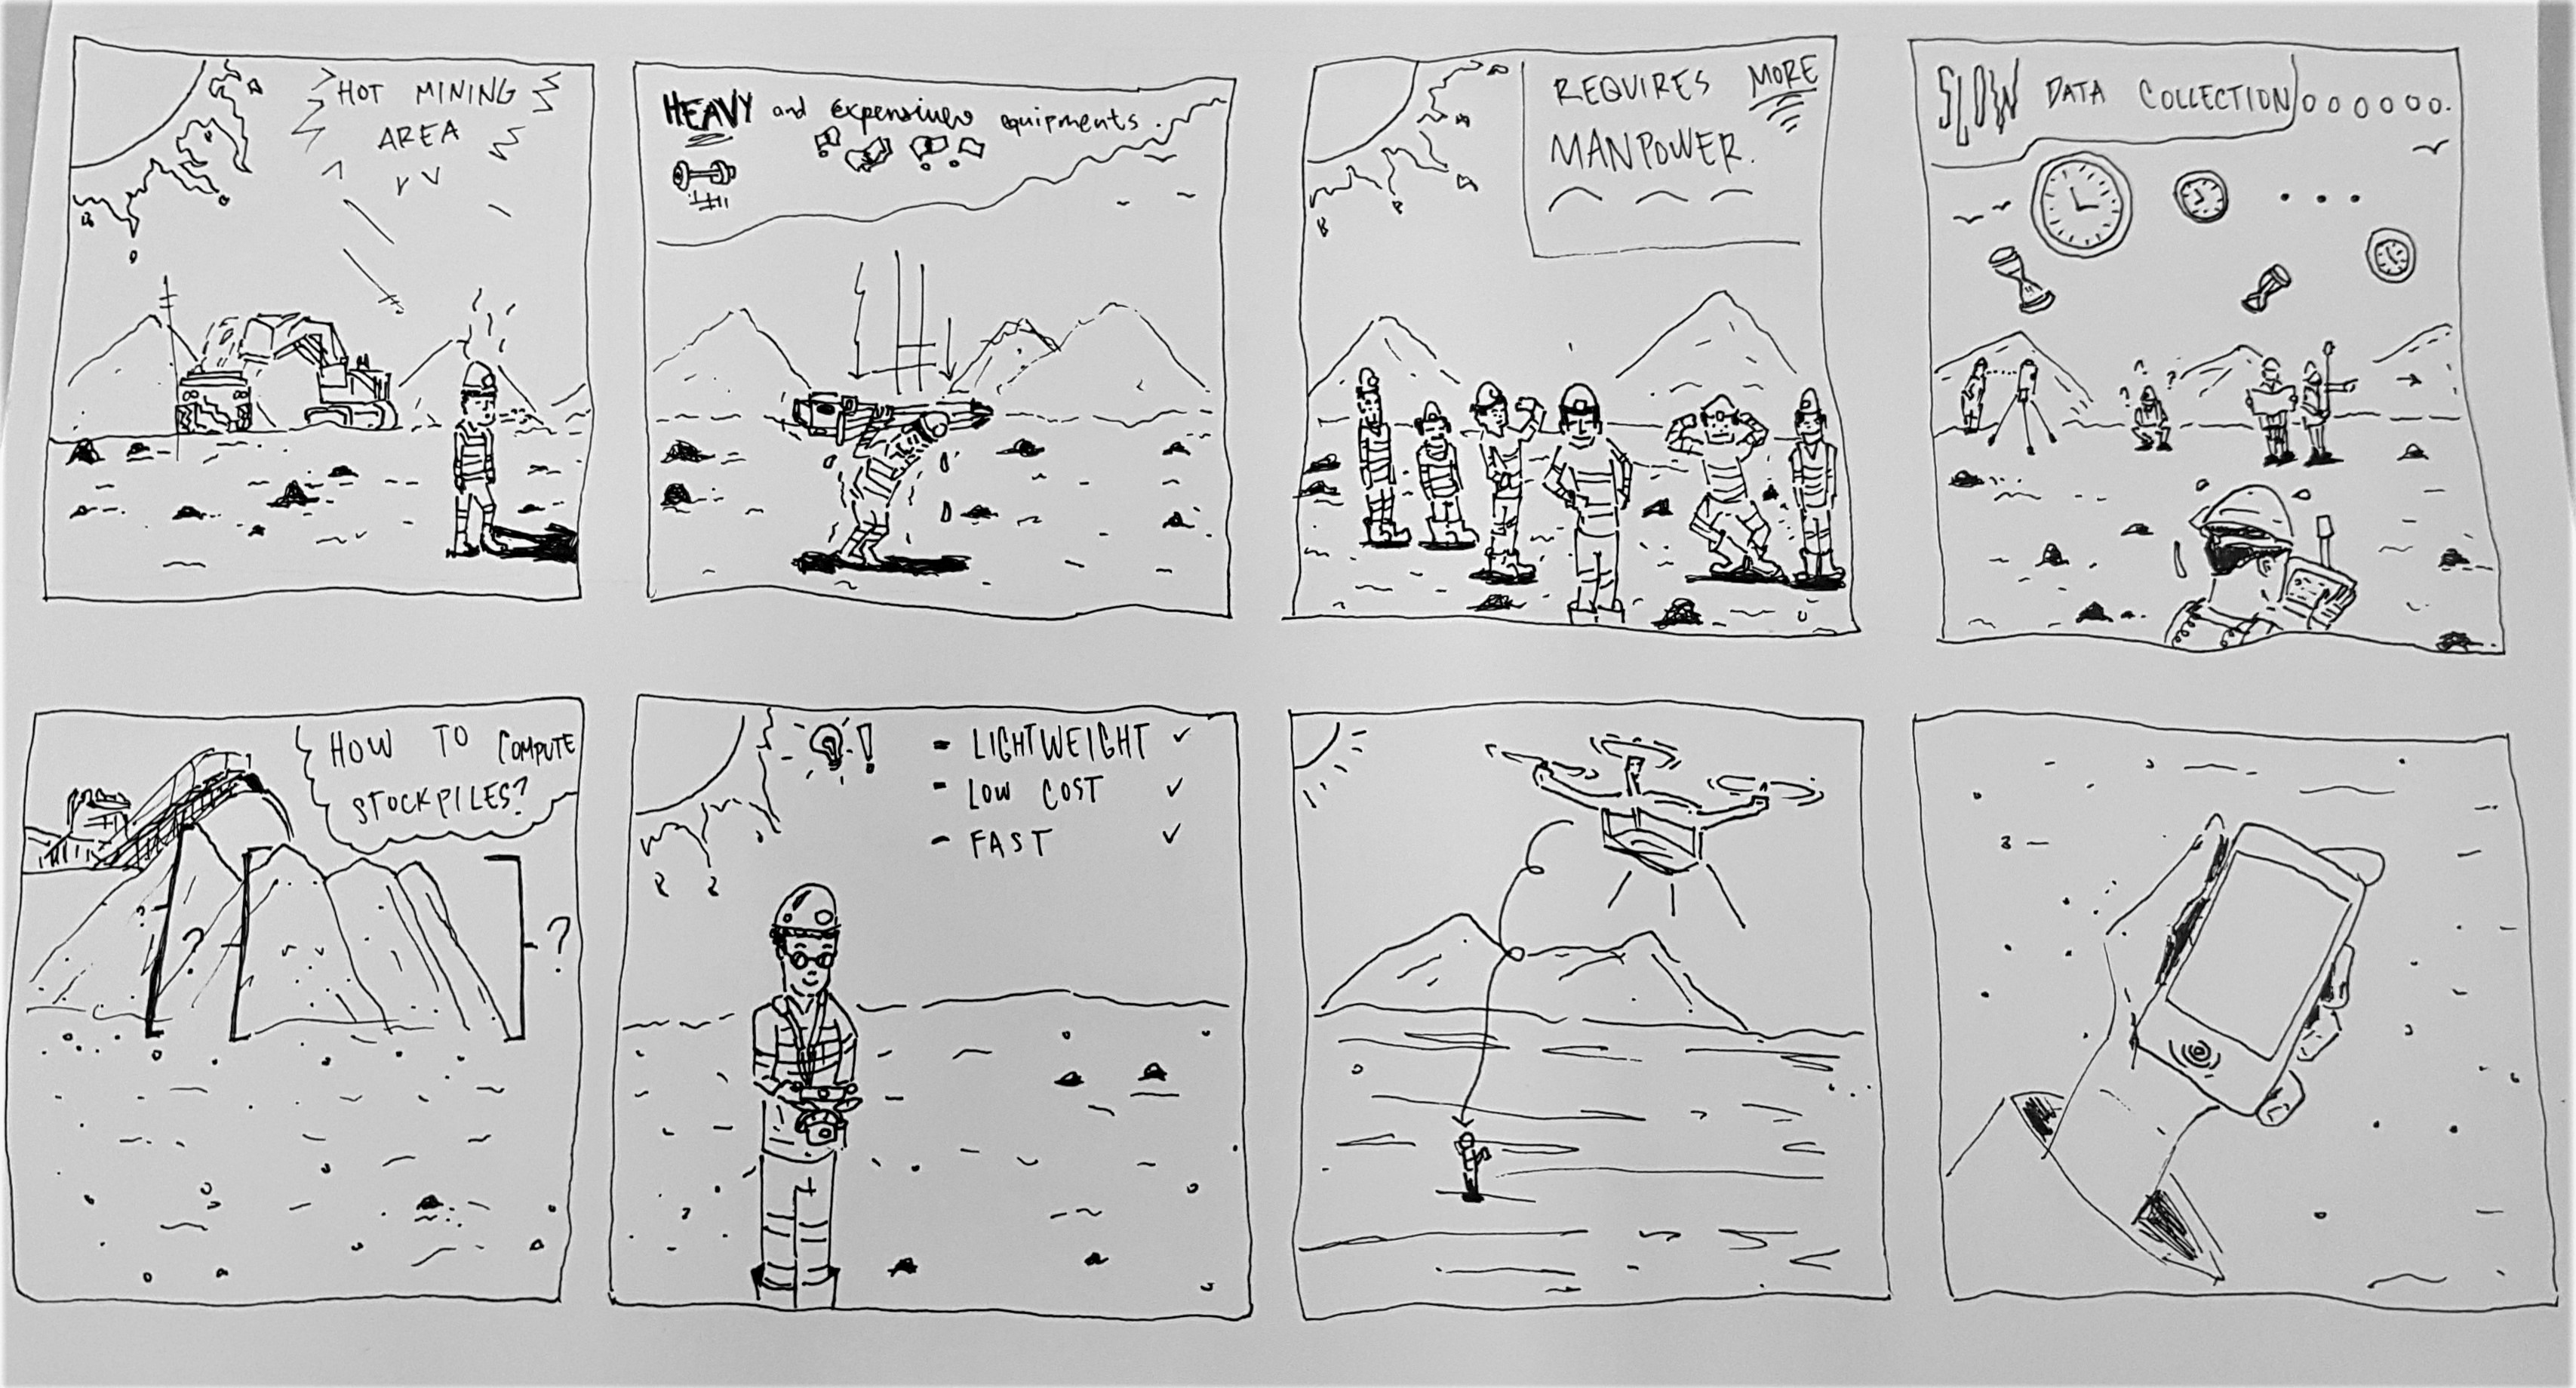 HOT MINING
AREA
HEAVY and expensive equipments.
REQUIRES MORE
MANPOWER.
SLOW DATA COLLECTION
HOW TO COMPUTE
STOCKPILES?
?
?
- LIGHTWEIGHT ✓
- LOW COST ✓
- FAST ✓